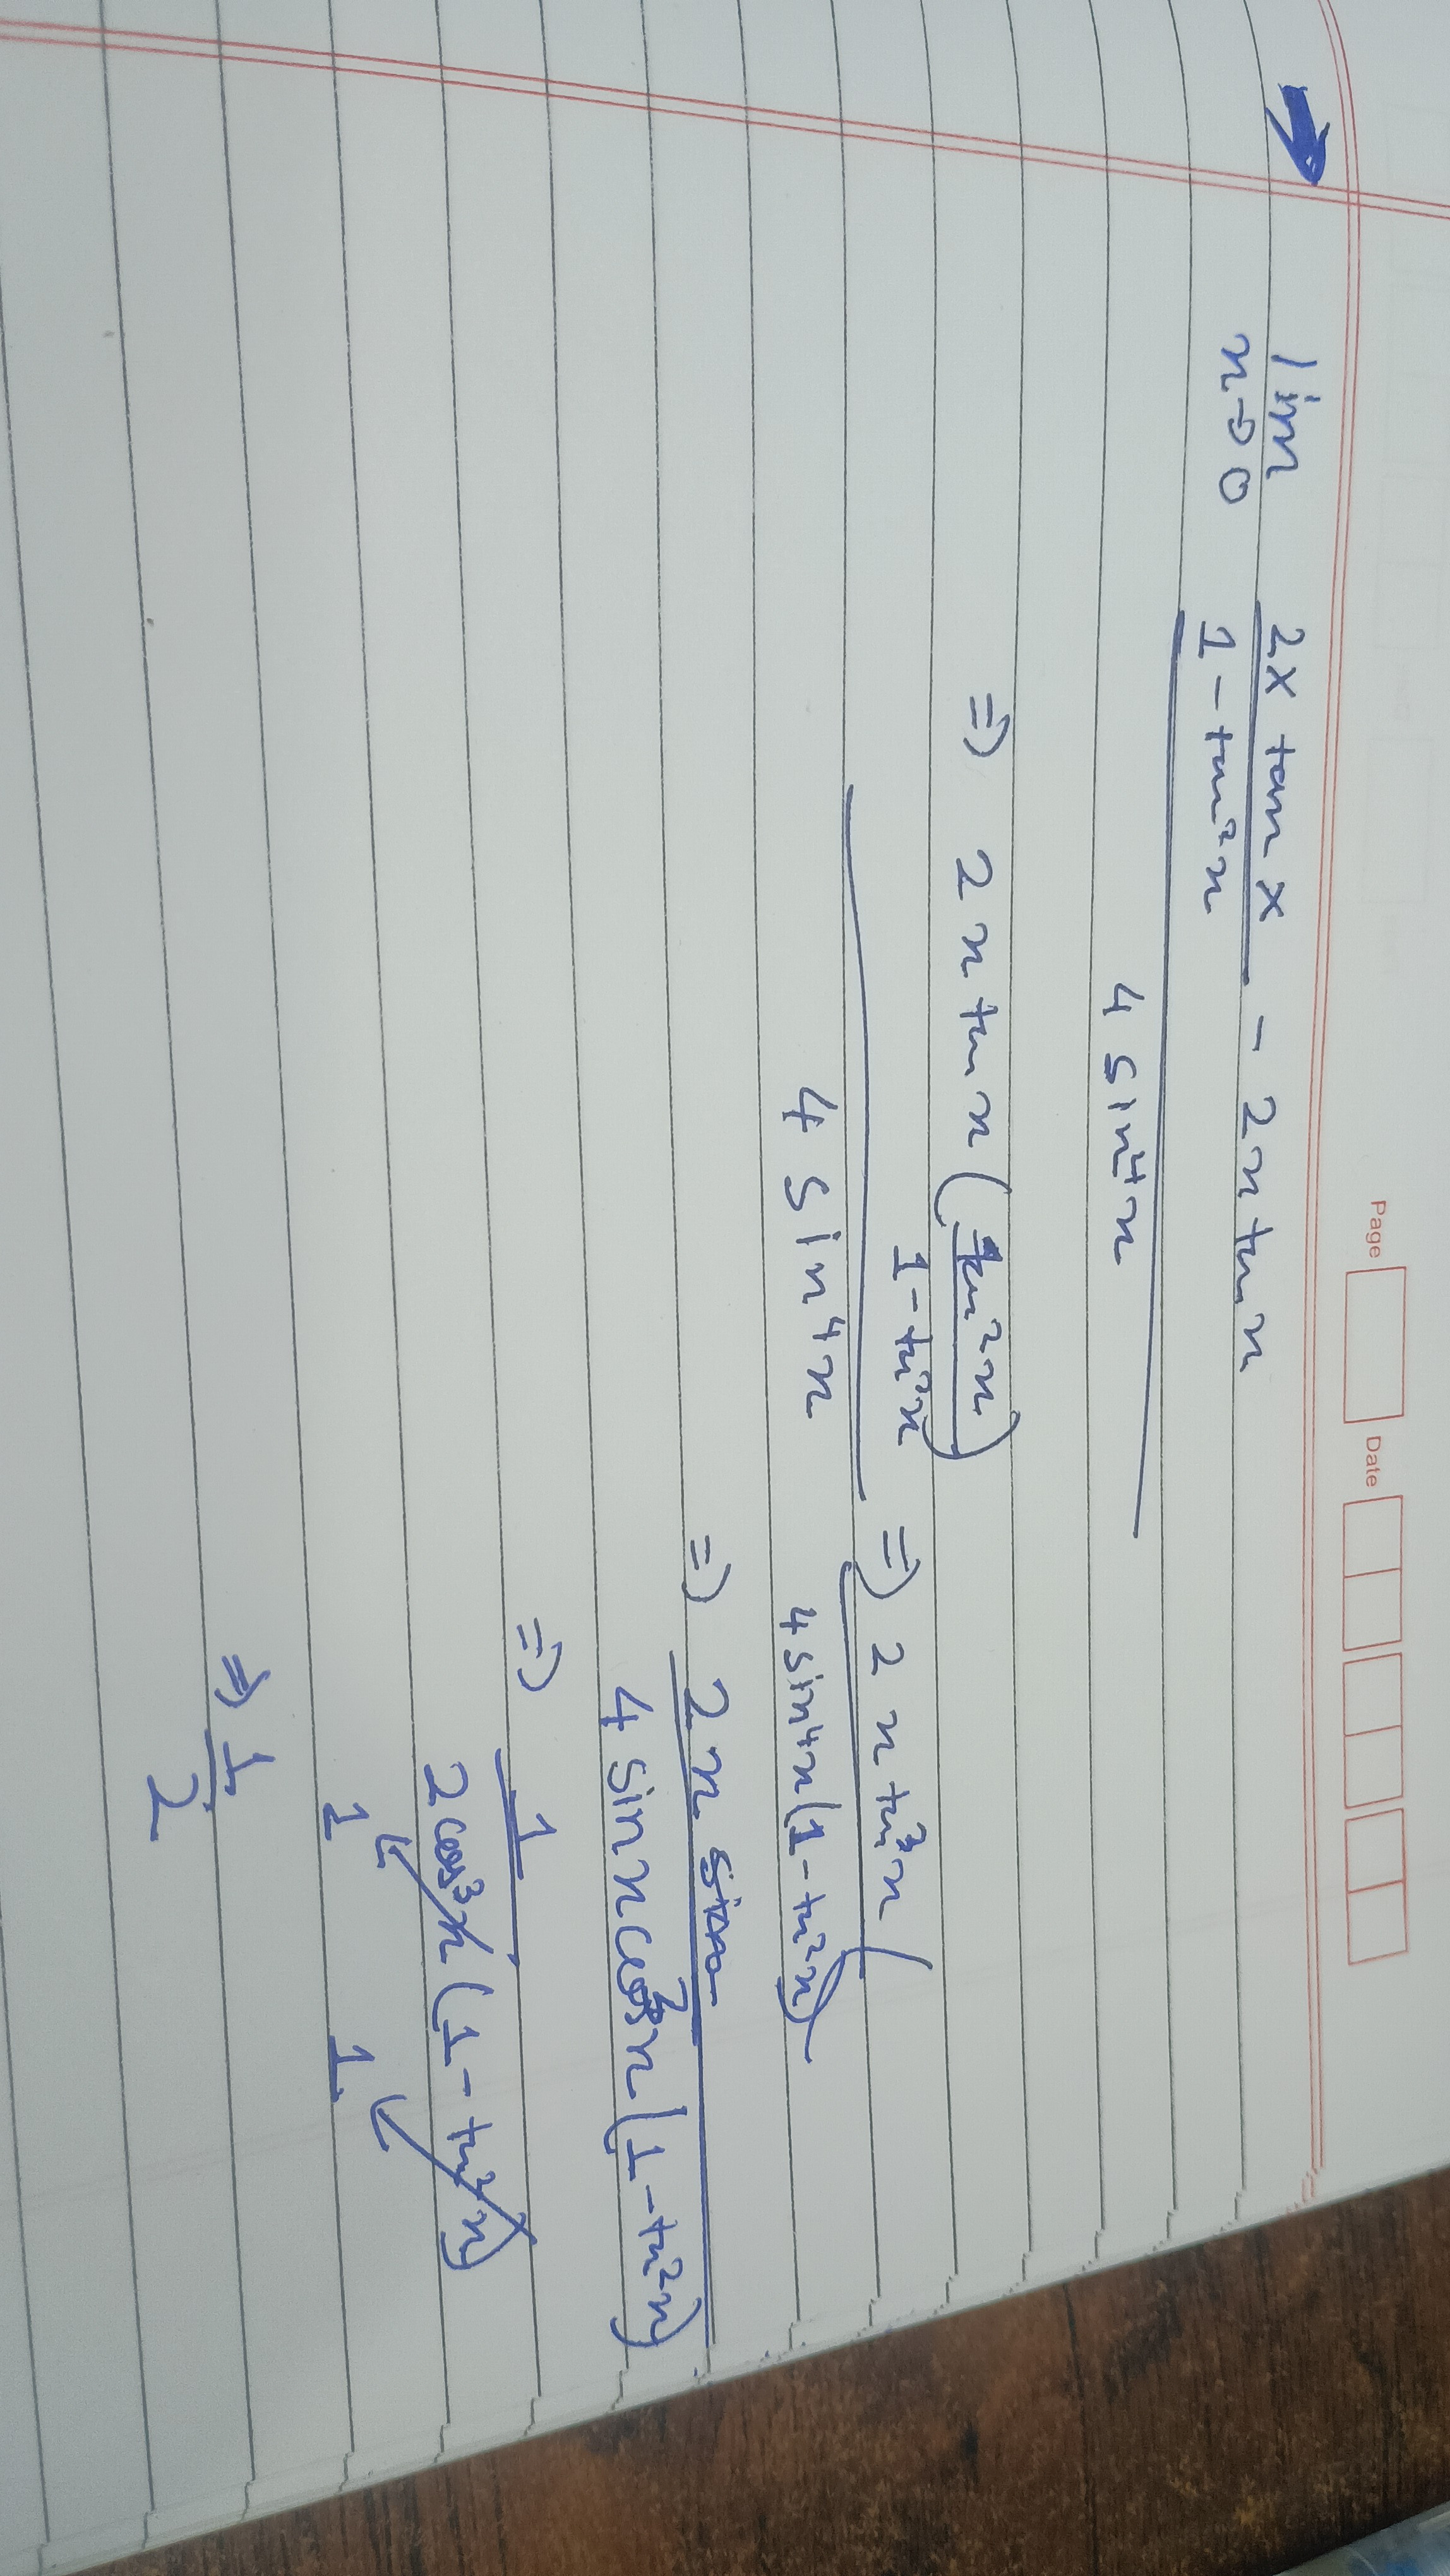 Page Date
lim 2x tan x - 2x tan x
x→0 1 - tan²x
4 sin⁴x
⇒ 2x tan x (tan²x)
1 - tan²x
4 sin⁴x
⇒ 2x tan³x
4 sin⁴x (1 - tan²x)
⇒ 2x
4 sin x cos³x (1 - tan²x)
⇒ 1
2 cos³x (1 - tan²x)
1 1
⇒ 1
2